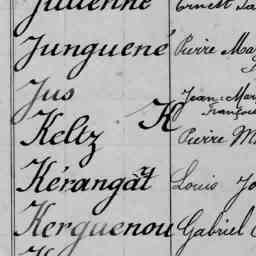 Julienne Ernest
Junguené Pierre Ma
Jus Jean-Mar
François
K
Keltz Pierre M
Kérangât Louis Jo
Kerguenou Gabriel